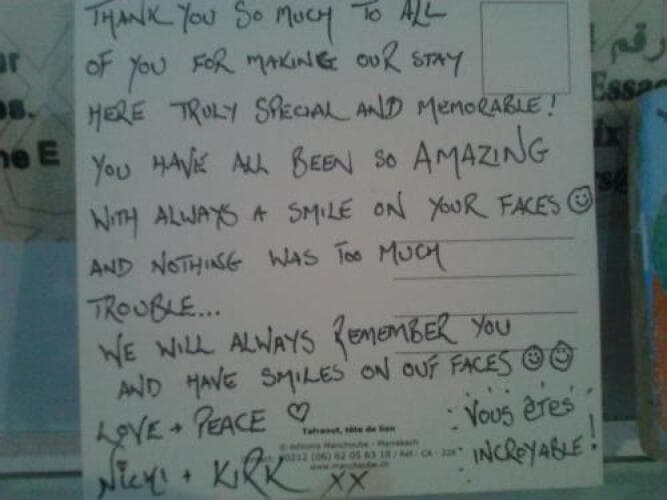 THANK YOU SO MUCH TO ALL
OF YOU FOR MAKING OUR STAY
HERE TRULY SPECIAL AND MEMORABLE!
YOU HAVE ALL BEEN SO AMAZING
WITH ALWAYS A SMILE ON YOUR FACES ☺
AND NOTHING WAS TOO MUCH
TROUBLE...
WE WILL ALWAYS REMEMBER YOU
AND HAVE SMILES ON OUR FACES ☺☺
LOVE + PEACE ♡
NICKI + KIRK XX
VOUS êTES
INCROYABLE!
Tafraout, tête de lion
© éditions Manchoube - Marrakech
00212 (06) 62 05 63 18 / Réf.: CA - 228
www.manchoube.ch
رقم
Essa
ne E